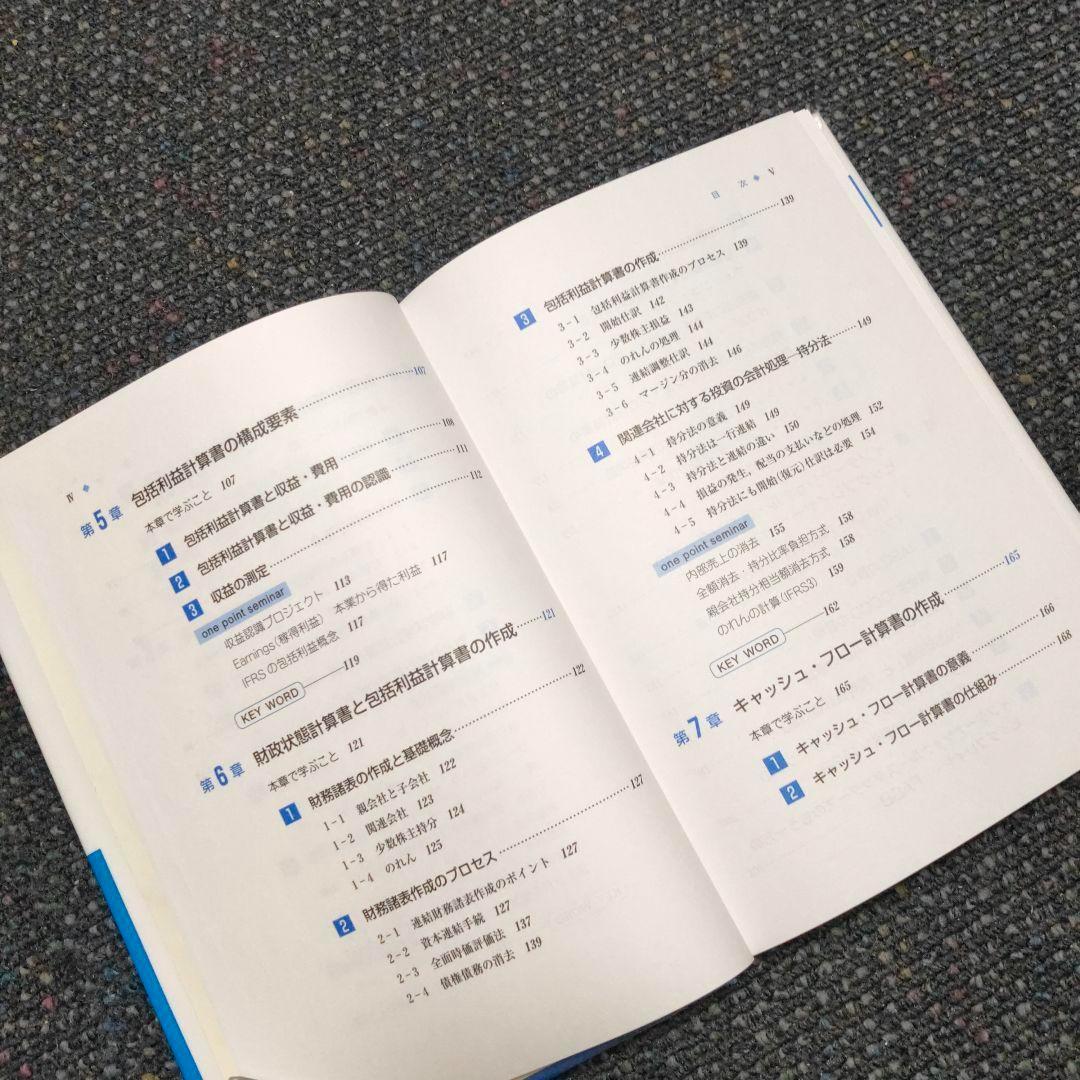 Ⅳ ◆
第5章 包括利益計算書の構成要素……107
本章で学ぶこと 107
1 包括利益計算書と収益・費用……108
2 包括利益計算書と収益・費用の認識……111
3 収益の測定……112
one point seminar
収益認識プロジェクト 113
Earnings(稼得利益) 本業から得た利益 117
IFRSの包括利益概念 117
KEY WORD 119
第6章 財政状態計算書と包括利益計算書の作成……121
本章で学ぶこと 121
1 財務諸表の作成と基礎概念……122
1-1 親会社と子会社 122
1-2 関連会社 123
1-3 少数株主持分 124
1-4 のれん 125
2 財務諸表作成のプロセス……127
2-1 連結財務諸表作成のポイント 127
2-2 資本連結手続 127
2-3 全面時価評価法 137
2-4 債権債務の消去 139
目 次 ◆ Ⅴ
3 包括利益計算書の作成……139
3-1 包括利益計算書作成のプロセス 139
3-2 開始仕訳 142
3-3 少数株主損益 143
3-4 のれんの処理 144
3-5 連結調整仕訳 144
3-6 マージン分の消去 146
4 関連会社に対する投資の会計処理―持分法……149
4-1 持分法の意義 149
4-2 持分法は一行連結 149
4-3 持分法と連結の違い 150
4-4 損益の発生，配当の支払いなどの処理 152
4-5 持分法にも開始(復元)仕訳は必要 154
one point seminar
内部売上の消去 155
全額消去・持分比率負担方式 158
親会社持分相当額消去方式 158
のれんの計算(IFRS3) 159
KEY WORD 162
第7章 キャッシュ・フロー計算書の作成……165
本章で学ぶこと 165
1 キャッシュ・フロー計算書の意義……166
2 キャッシュ・フロー計算書の仕組み……168